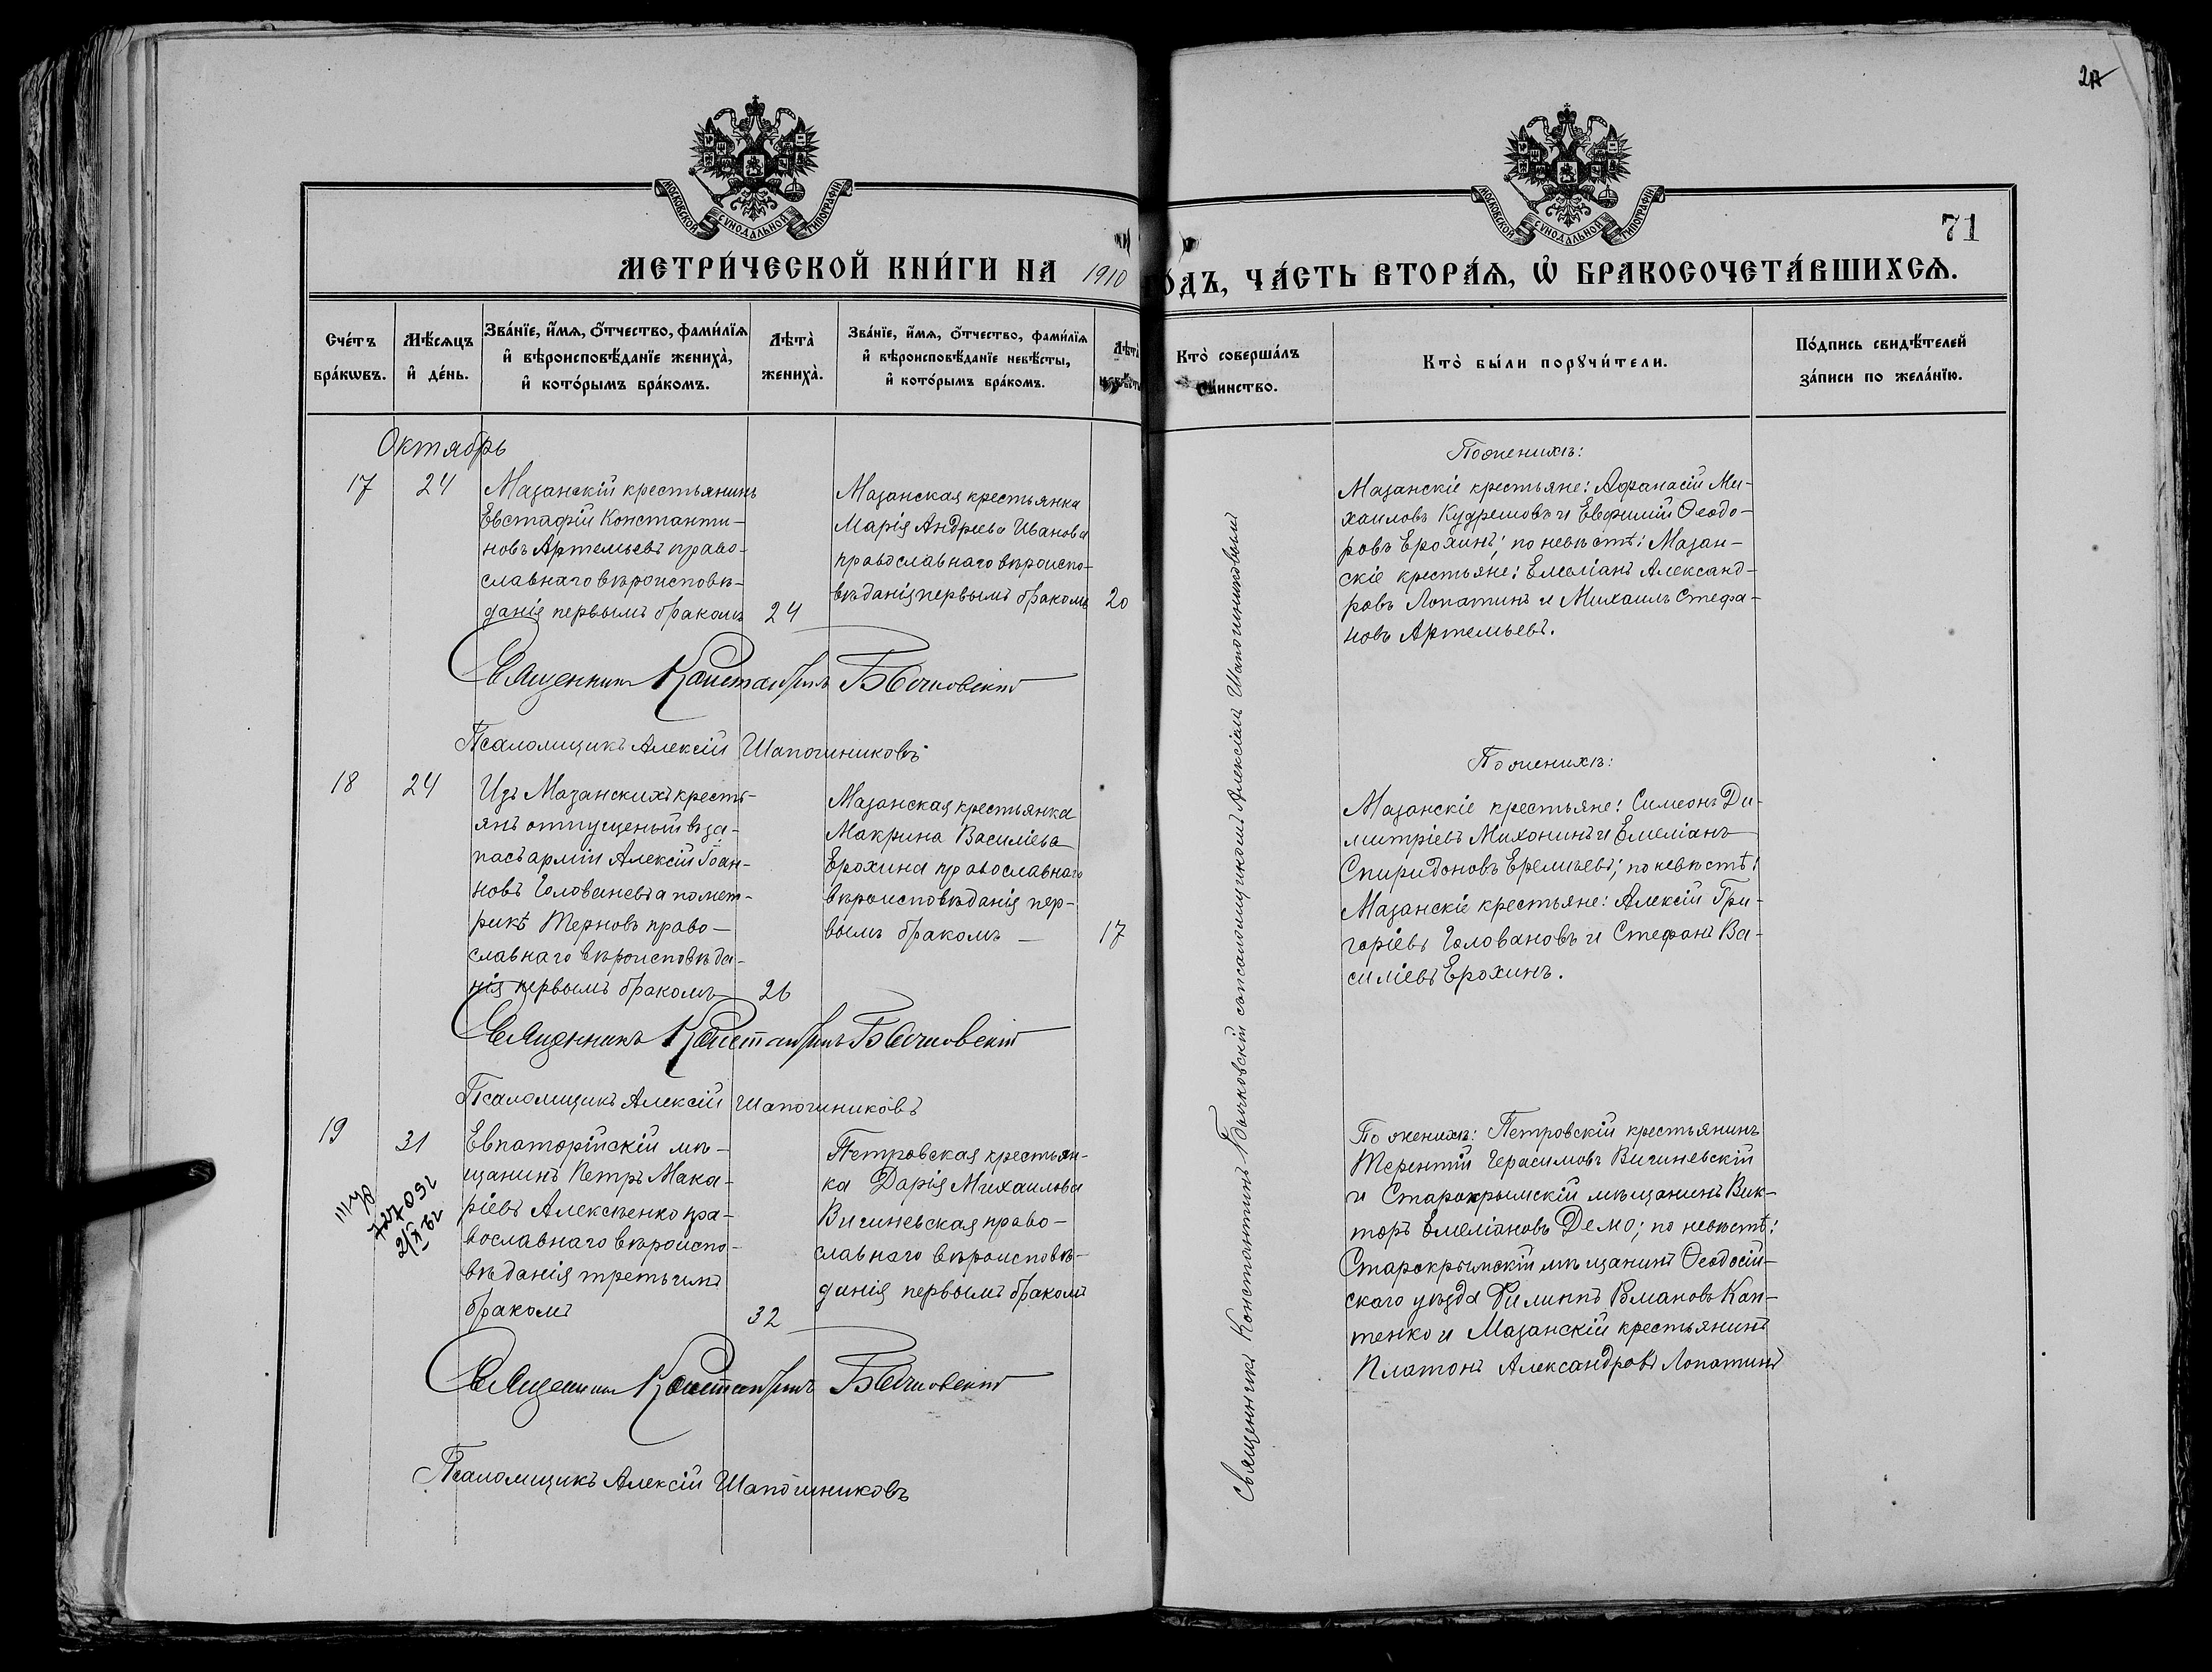 27
МОСКОВСКОЙ СѴНОДАЛЬНОЙ ТИПОГРАФІИ
МОСКОВСКОЙ СѴНОДАЛЬНОЙ ТИПОГРАФІИ
71
МЕТРИ́ЧЕСКОЙ КНИ́ГИ НА 1910 ГО́ДЪ, ЧА́СТЬ ВТОРА́Ѧ, Ѡ҆ БРАКОСОЧЕТА́ВШИХСѦ.
Сче́тъ
бра́кѡвъ.
Мѣ́сѧцъ
и҆ де́нь.
Зва́нїе, и҆́мѧ, ѻ҆́тчество, фами́лїѧ
и҆ вѣроисповѣ́данїе жениха̀,
и҆ кото́рымъ бра́комъ.
Лѣта̀
жениха̀.
Зва́нїе, и҆́мѧ, ѻ҆́тчество, фами́лїѧ
и҆ вѣроисповѣ́данїе невѣ́сты,
и҆ кото́рымъ бра́комъ.
Лѣта̀
невѣ́сты
Кто̀ соверша́лъ
таинство.
Кто̀ бы́ли порꙋчи́тели.
По́дпись свидѣ́телей
за́писи по жела́нїю.
Октябрь
17
24
Мазанскій крестьянинъ
Евстафій Константи-
новъ Артемьевъ право-
славнаго вѣроисповѣ-
данія первымъ бракомъ
24
Мазанская крестьянка
Марія Андреева Иванова
православнаго вѣроиспо-
вѣданія первымъ бракомъ
20
По женихѣ:
Мазанскіе крестьяне: Афанасій Ми-
хаиловъ Кудрешовъ и Евфимій Ѳеодо-
ровъ Ерохинъ; по невѣстѣ: Мазан-
скіе крестьяне: Емеліанъ Александ-
ровъ Лопатинъ и Михаилъ Стефа-
новъ Артемьевъ.
Священникъ Константинъ Бычковскій
Псаломщикъ Алексій Шапошниковъ
18
24
Изъ Мазанскихъ кресть-
янъ отпущеный въ за-
пасъ арміи Алексій Іоан-
новъ Голованевъ а по мет-
рикѣ Терновъ право-
славнаго вѣроисповѣда-
нія первымъ бракомъ
26
Мазанская крестьянка
Макрина Василіева
Ерохина православнаго
вѣроисповѣданія пер-
вымъ бракомъ
17
По женихѣ:
Мазанскіе крестьяне: Симеонъ Ди-
митріевъ Михонинъ и Емеліанъ
Спиридоновъ Еремѣевъ; по невѣстѣ:
Мазанскіе крестьяне: Алексій Гри-
горіевъ Головановъ и Стефанъ Ва-
силіевъ Ерохинъ.
Священникъ Константинъ Бычковскій
Псаломщикъ Алексій Шапошниковъ
19
31
Евпаторійскій мѣ-
щанинъ Петръ Мака-
ріевъ Алексѣенко пра-
вославнаго вѣроиспо-
вѣданія третьимъ
бракомъ
32
Петровская крестьян-
ка Дарія Михаилова
Вишневская право-
славнаго вѣроисповѣ-
данія первымъ бракомъ
По женихѣ: Петровскій крестьянинъ
Терентій Герасимовъ Вишневскій
и Старокрымскій мѣщанинъ Вик-
торъ Емеліановъ Демо; по невѣстѣ:
Старокрымскій мѣщанинъ Ѳеодосій-
скаго уѣзда Филиппъ Романовъ Кап-
тенко и Мазанскій крестьянинъ
Платонъ Александровъ Лопатинъ
Священникъ Константинъ Бычковскій
Псаломщикъ Алексій Шапошниковъ
Священникъ Константинъ Бычковскій съ псаломщикомъ Алексіемъ Шапошниковымъ